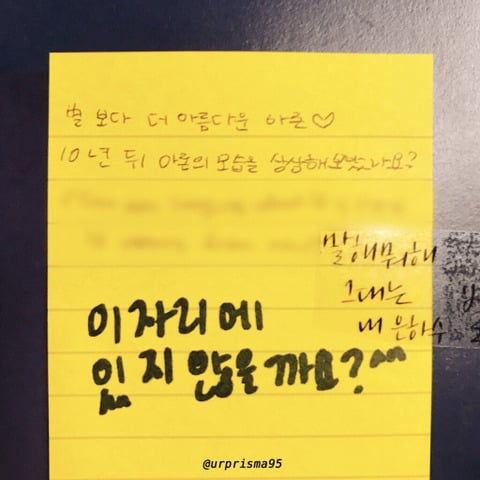 별 보다 더 아름다운 아론♡
10년 뒤 아론의 모습을 상상해보셨나요?
말해뭐해
그대는
내 은하수
이자리에
있지 않을까요?^^
@urprisma95